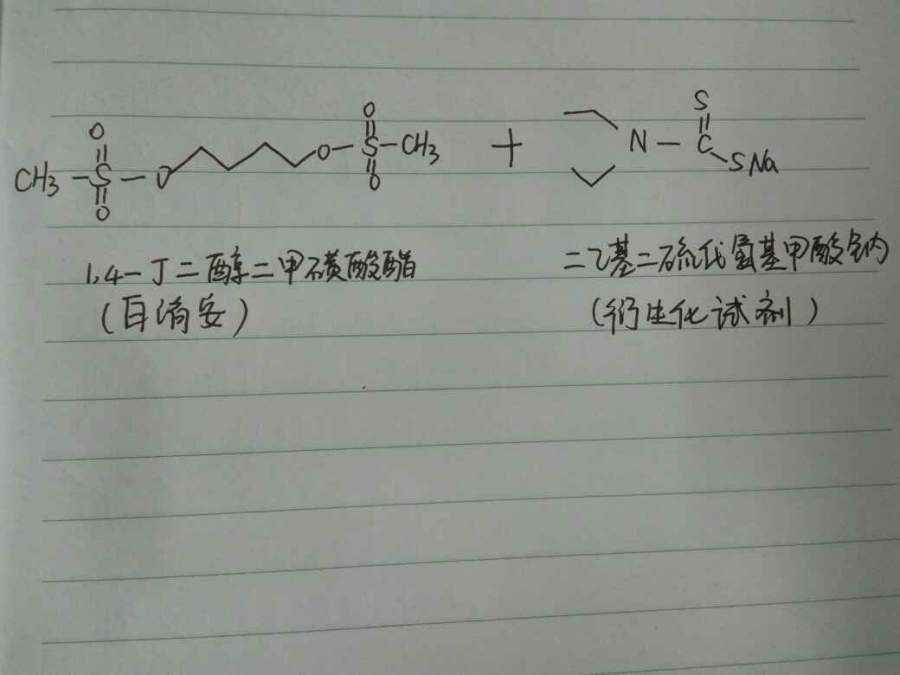 O O S
CH₃-S-O O-S-CH₃ + N-C
O O SNa
1,4-丁二醇二甲磺酸酯 二乙基二硫代氨基甲酸钠
(白消安) (衍生化试剂)